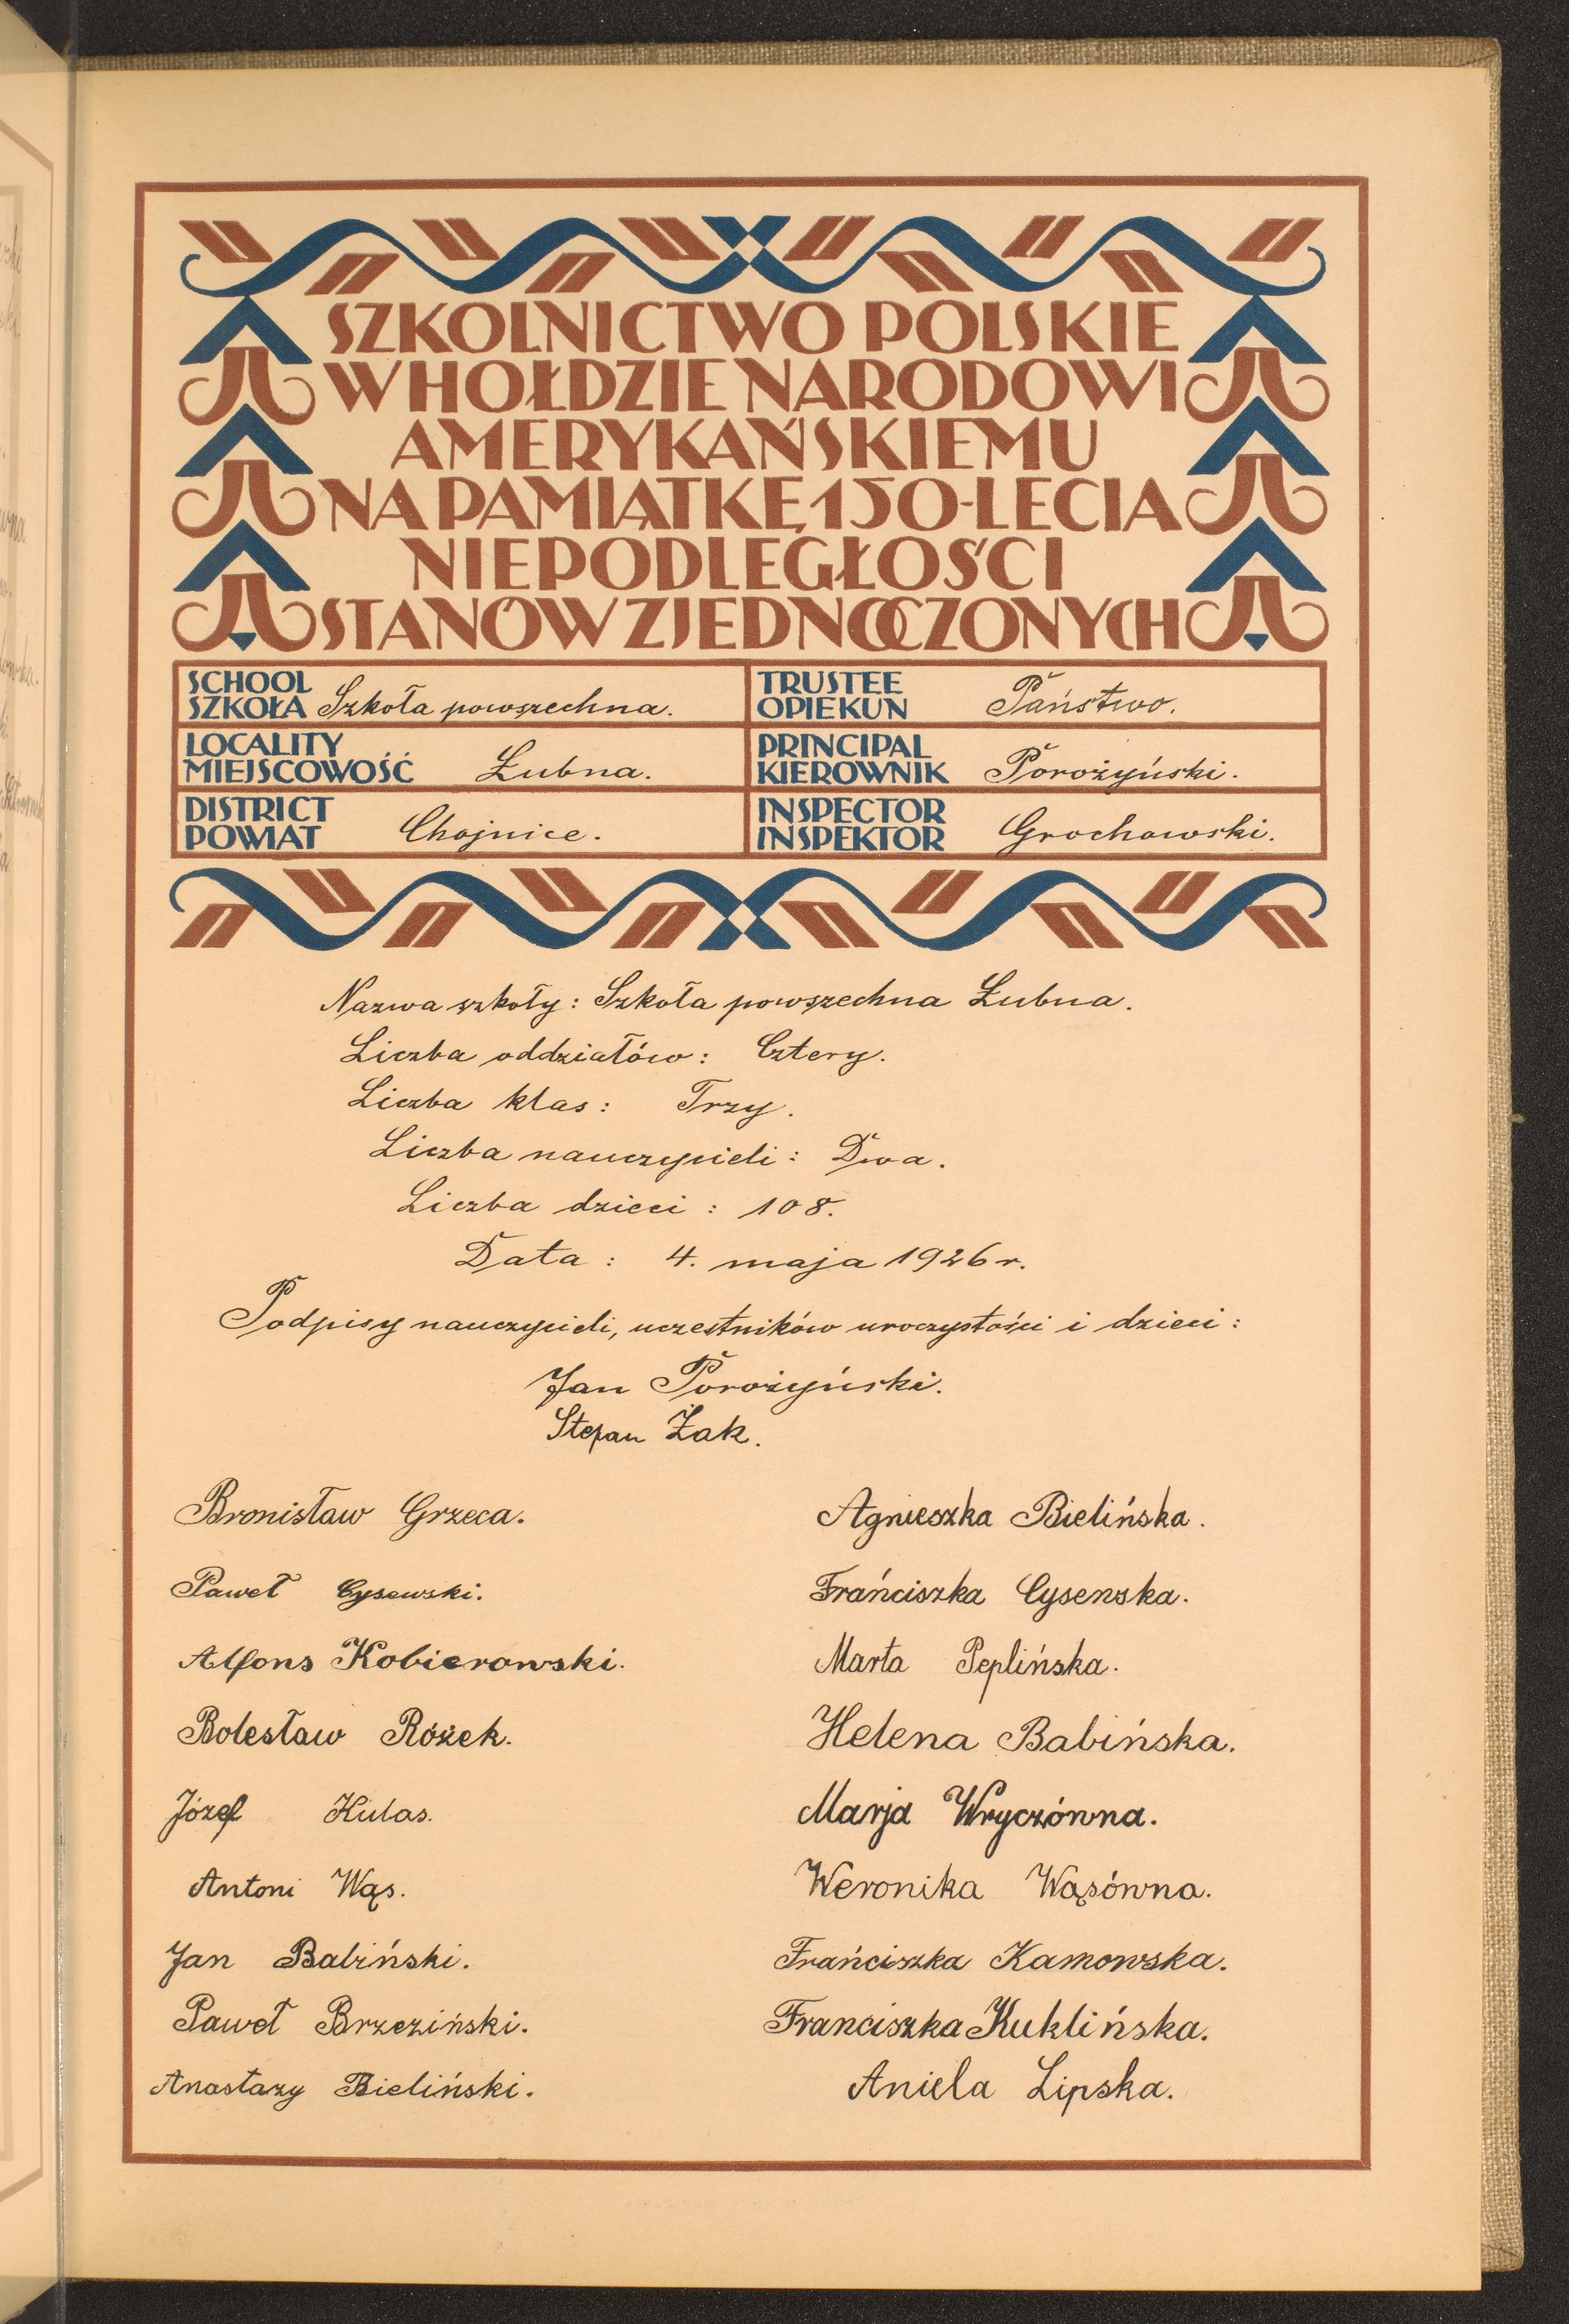 SZKOLNICTWO POLSKIE
W HOŁDZIE NARODOWI
AMERYKAŃSKIEMU
NA PAMIĄTKĘ 150-LECIA
NIEPODLEGŁOŚCI
STANÓW ZJEDNOCZONYCH
SCHOOL
SZKOŁA Szkoła powszechna.
TRUSTEE
OPIEKUN Państwo.
LOCALITY
MIEJSCOWOŚĆ Łubna.
PRINCIPAL
KIEROWNIK Porożyński.
DISTRICT
POWIAT Chojnice.
INSPECTOR
INSPEKTOR Grochowski.
Nazwa szkoły: Szkoła powszechna Łubna.
Liczba oddziałów: Cztery.
Liczba klas: Trzy.
Liczba nauczycieli: Dwa.
Liczba dzieci: 108.
Data: 4. maja 1926 r.
Podpisy nauczycieli, uczestników uroczystości i dzieci:
Jan Porożyński.
Stefan Żak.
Bronisław Grzeca.
Agnieszka Bielińska.
Paweł Cysewski.
Frańciszka Cysenska.
Alfons Kobierowski.
Marta Peplińska.
Bolesław Różek.
Helena Babińska.
Józef Kulas.
Marja Wryczówna.
Antoni Wąs.
Weronika Wąsówna.
Jan Babiński.
Frańciszka Kamowska.
Paweł Brzeziński.
Franciszka Kuklińska.
Anastazy Bieliński.
Aniela Lipska.